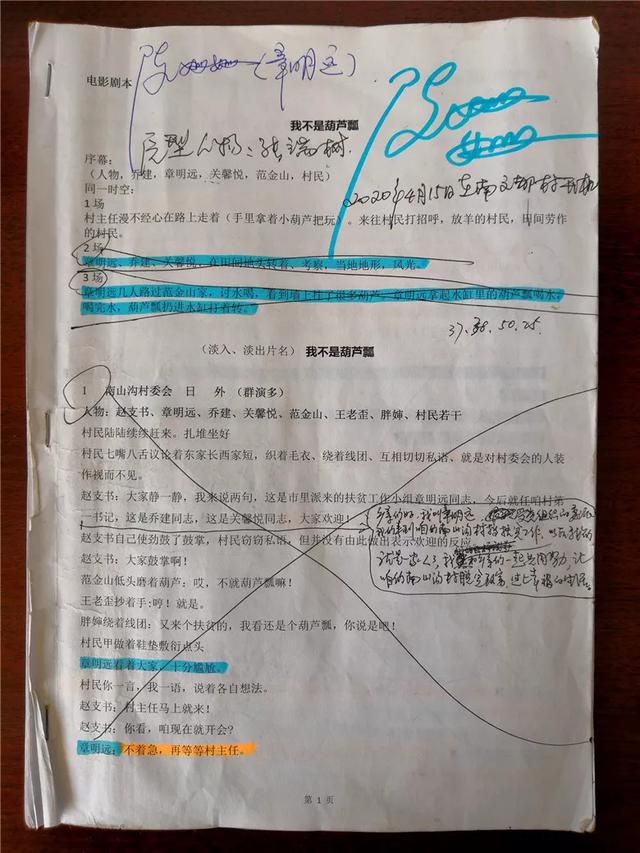 电影剧本
(章明远)
我不是葫芦瓢
原型人物:张瑞树
序幕:
(人物,乔建,章明远,关馨悦,范金山,村民)
2020年4月15日
同一时空:
1场
村主任漫不经心在路上走着(手里拿着小葫芦把玩)。来往村民打招呼,放羊的村民,田间劳作
的村民。
2场
章明远、乔建、关馨悦、在田间地头转着、考察,当地地形,风光。
3场
章明远几人路过范金山家,讨水喝,看到墙上挂了很多葫芦,章明远拿起水缸里的葫芦瓢喝水,
喝完水,葫芦瓢扔进水缸打着转。
37.38.50.25.
(淡入、淡出片名) 我不是葫芦瓢
1 南山沟村委会 日 外 (群演多)
人物:赵支书、章明远、乔建、关馨悦、范金山、王老歪、胖婶、村民若干
村民陆陆续续赶来。扎堆坐好
村民七嘴八舌议论着东家长西家短,织着毛衣、绕着线团、互相切切私语、就是对村委会的人装
作视而不见。
赵支书:大家静一静,我来说两句,这是市里派来的扶贫工作小组章明远同志,今后就任咱村第
一书记,这是乔建同志,这是关馨悦同志,大家欢迎!
赵支书自己使劲鼓了鼓掌,村民窃窃私语,但并没有由此做出表示欢迎的反应。
赵支书:大家鼓掌啊!
范金山低头磨着葫芦:哎,不就葫芦瓢嘛!
王老歪抄着手:哼!就是。
胖婶绕着线团:又来个扶贫的,我看还是个葫芦瓢,你说是吧!
村民甲做着鞋垫敷衍点头
章明远看着大家,十分尴尬。
村民你一言,我一语,说着各自想法。
赵支书:村主任马上就来!
赵支书:你看,咱现在就开会?
章明远:不着急,再等等村主任。
第 1 页